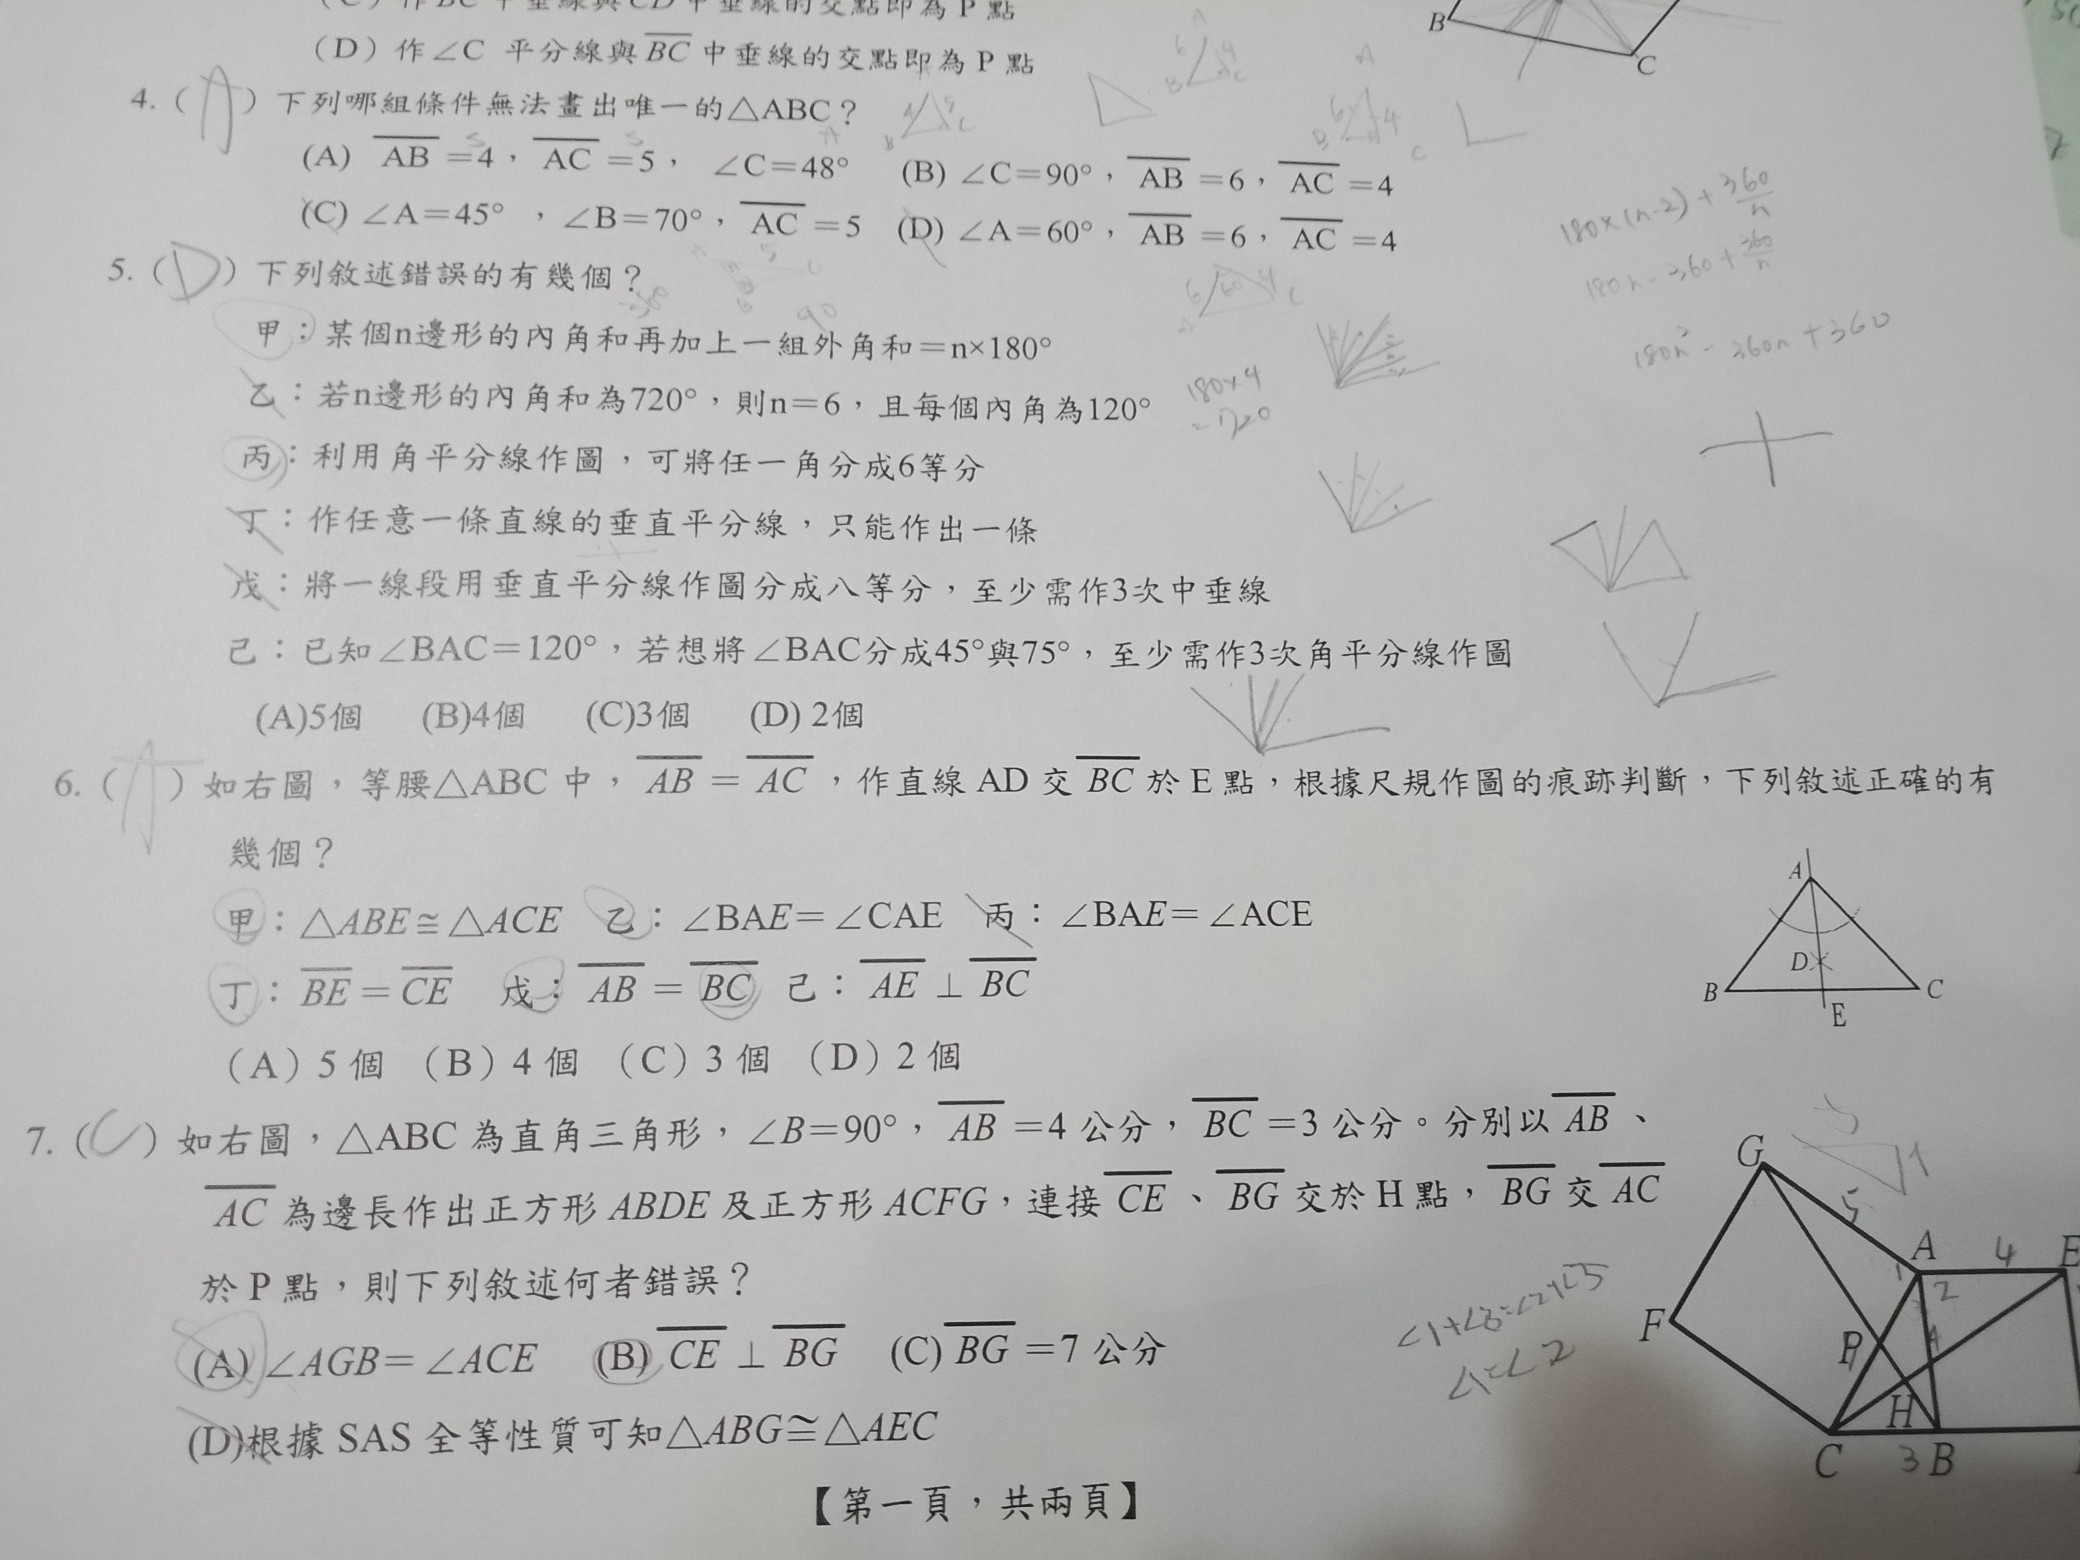 (C) 作 BC 中垂線與 CD 中垂線的交點即為 P 點
(D) 作∠C 平分線與 BC 中垂線的交點即為 P 點
4. ( A ) 下列哪組條件無法畫出唯一的△ABC？
(A) AB=4，AC=5，∠C=48° (B) ∠C=90°，AB=6，AC=4
(C) ∠A=45°，∠B=70°，AC=5 (D) ∠A=60°，AB=6，AC=4
5. ( D ) 下列敘述錯誤的有幾個？
甲：某個n邊形的內角和再加上一組外角和=n×180°
乙：若n邊形的內角和為720°，則n=6，且每個內角為120°
丙：利用角平分線作圖，可將任一角分成6等分
丁：作任意一條直線的垂直平分線，只能作出一條
戊：將一線段用垂直平分線作圖分成八等分，至少需作3次中垂線
己：已知∠BAC=120°，若想將∠BAC分成45°與75°，至少需作3次角平分線作圖
(A)5個 (B)4個 (C)3個 (D) 2個
6. ( A ) 如右圖，等腰△ABC 中，AB = AC，作直線 AD 交 BC 於 E 點，根據尺規作圖的痕跡判斷，下列敘述正確的有
幾個？
甲：△ABE≅△ACE 乙：∠BAE=∠CAE 丙：∠BAE=∠ACE
丁：BE = CE 戊：AB = BC 己：AE ⊥ BC
(A) 5 個 (B) 4 個 (C) 3 個 (D) 2 個
7. ( C ) 如右圖，△ABC 為直角三角形，∠B=90°，AB=4 公分，BC=3 公分。分別以 AB、
AC 為邊長作出正方形 ABDE 及正方形 ACFG，連接 CE、BG 交於 H 點，BG 交 AC
於 P 點，則下列敘述何者錯誤？
(A) ∠AGB=∠ACE (B) CE ⊥ BG (C) BG =7 公分
(D)根據 SAS 全等性質可知△ABG≅△AEC
【第一頁，共兩頁】
B
C
180×(n-2)+360/n
180n-360+360/n
180n²-360n+360
180×4
=720
A
D
B
C
E
G
5
A
4
E
2
F
P
H
C
3
B
∠1=∠2